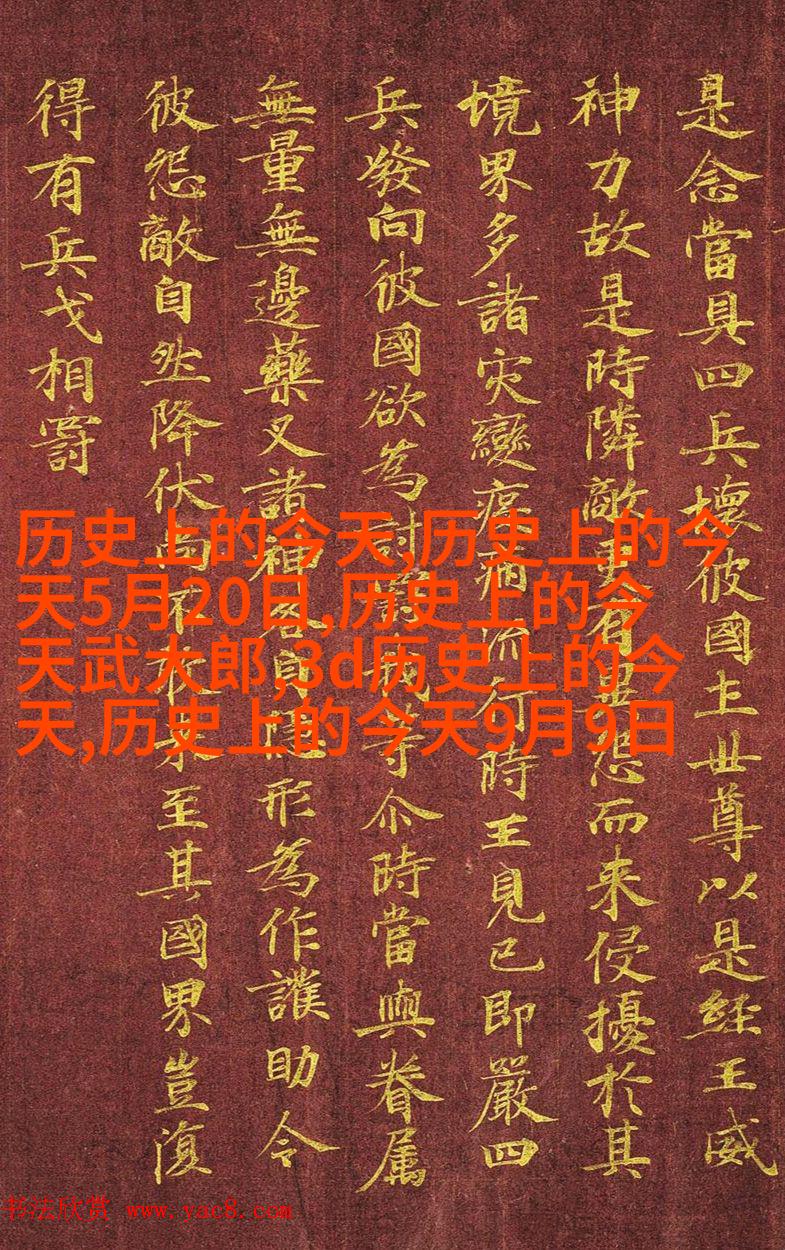 是念當具四兵壞彼國土世尊以是經王威
神力故是時隣敵更有異怨而来侵擾於其
境界多諸灾變疫病流行時王見已即嚴四
兵發向彼國欲為討罰我等尒時當與眷属
無量無邊藥叉諸神各自隱形為作護助令
彼怨敵自然降伏尚不來至其國界豈復
得有兵戈相罸
历史上的今天,历史上的今
天5月20日,历史上的今
天武大郎,3d历史上的今
天,历史上的今天9月9日
书法欣赏 www.yac8.com